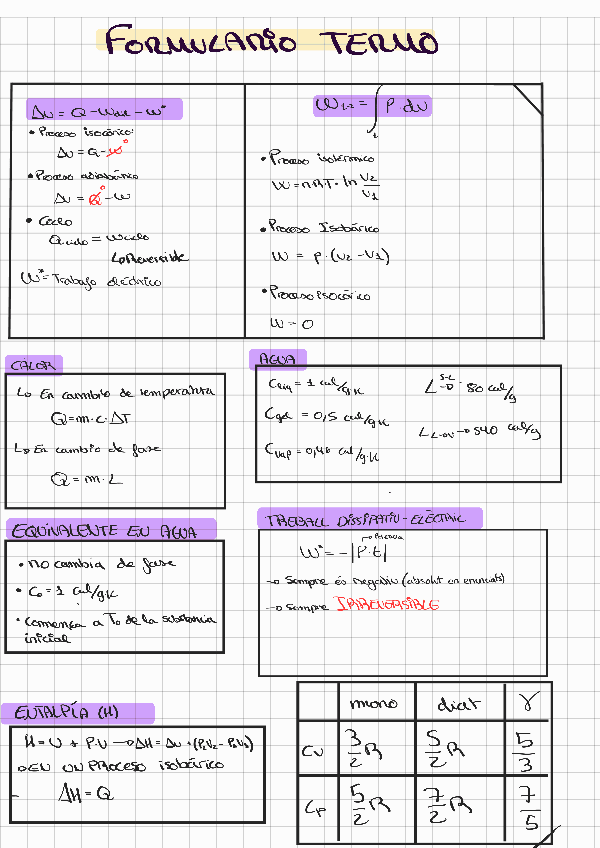 FORMULARIO TERMO
Δu = Q - Wdil - W*
• Proceso isocórico:
Δu = Q - W⁰
• Proceso adiabático
Δu = Q⁰ - W
• Ciclo
Qciclo = Wciclo
↳ Reversible
W* = Trabajo eléctrico
W₁₋₂ = ∫ P dv
• Proceso isotérmico
W = n·R·T · ln V2/V1
• Proceso Isobárico
W = P·(V2 - V1)
• Proceso isocórico
W = 0
CALOR
↳ En cambio de temperatura
Q = m·c·ΔT
↳ En cambio de fase
Q = m·L
AGUA
Cliq = 1 cal/g·K
Cgel = 0,5 cal/g·K
Cvap = 0,46 cal/g·K
L S-L → 80 cal/g
L L-V → 540 cal/g
EQUIVALENTE EN AGUA
• no cambia de fase
• Ce = 1 cal/g·K
• comença a T0 de la substancia
inicial
TREBALL DISSIPATIU - ELÈCTRIC
→ Potencia
W* = -|P·t|
→ Sempre és negatiu (absolut en enunciats)
→ Sempre IRREVERSIBLE
ENTALPÍA (H)
H = U + P·V → ΔH = Δu + (P2V2 - P1V1)
→ EN UN PROCESO isobárico
ΔH = Q
mono diat γ
Cv 3/2 R 5/2 R 5/3
Cp 5/2 R 7/2 R 7/5